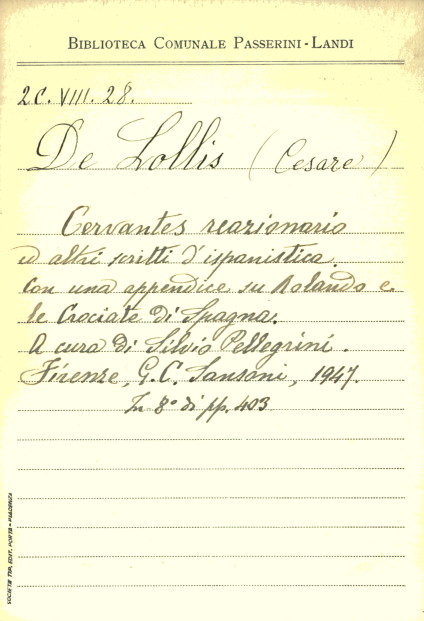 BIBLIOTECA COMUNALE PASSERINI-LANDI
2C. VIII. 28.
De Lollis (Cesare)
Cervantes reazionario
ed altri scritti d'ispanistica.
Con una appendice su Rolando e
le Crociate di Spagna.
A cura di Silvio Pellegrini.
Firenze, G.C. Sansoni, 1947.
In 8° di pp. 403
SOCIETÀ TIP. EDIT. PORTA - PIACENZA